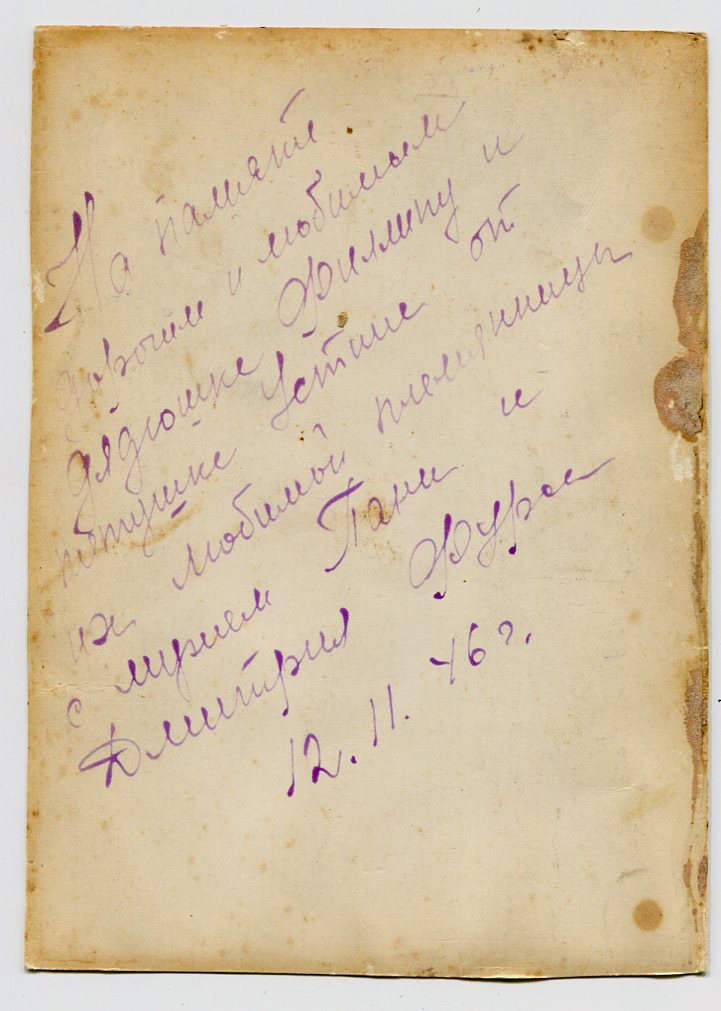 На память
дорогим и любимым
дядюшке Филлипу и
тетушке Устине от
их любимой племянницы
с мужем Тани и
Дмитрия Фурсы
12.11.46 г.